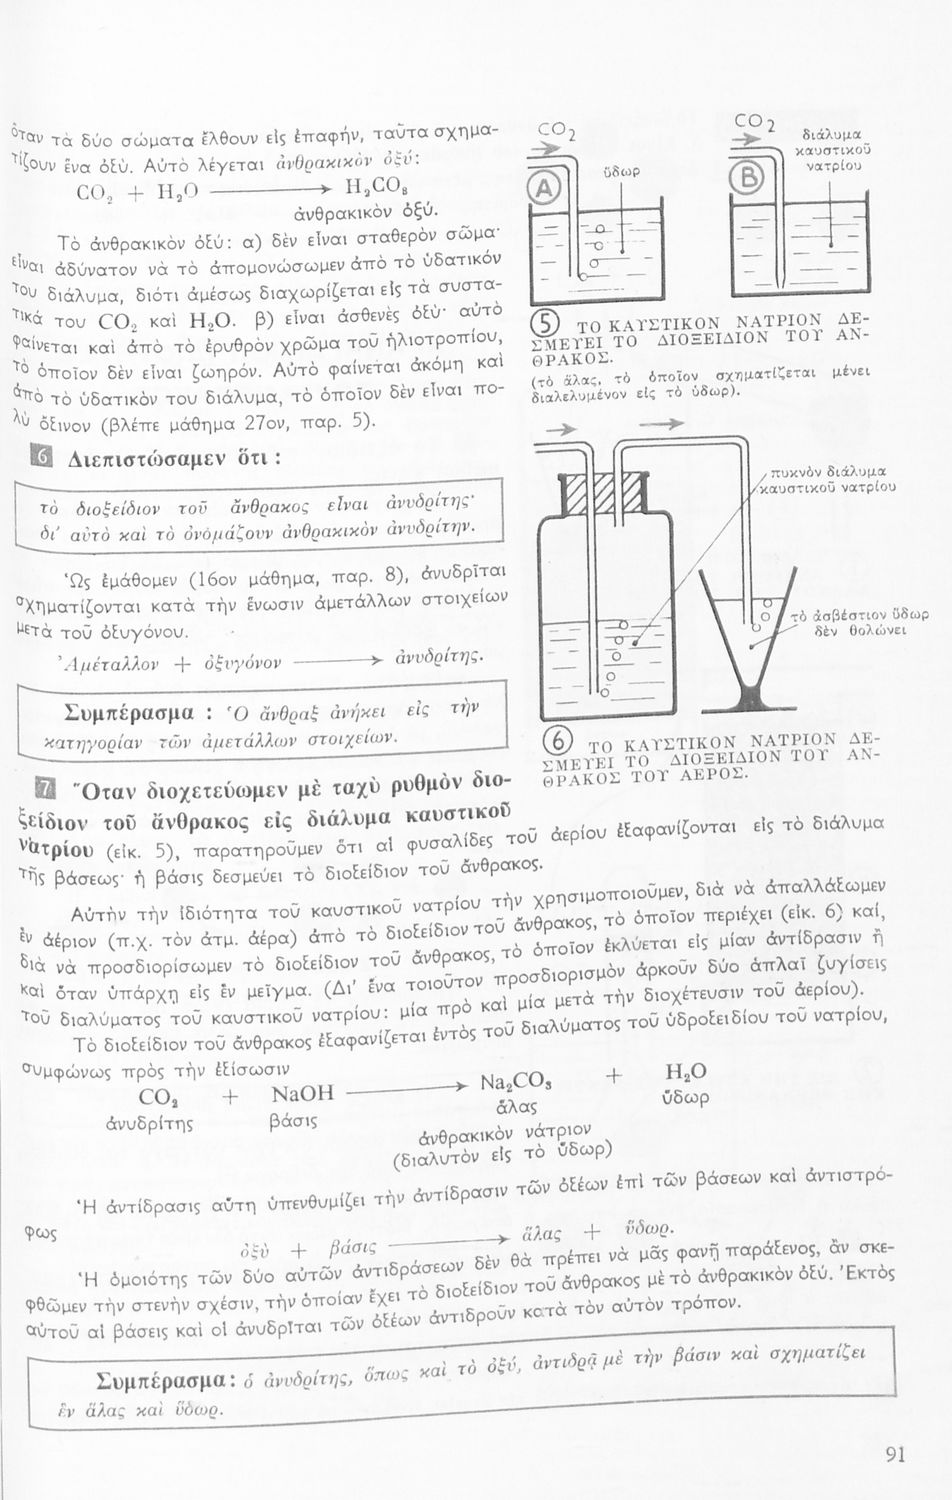 ὅταν τὰ δύο σώματα ἔλθουν εἰς ἐπαφήν, ταῦτα σχημα-
τίζουν ἕνα ὀξύ. Αὐτὸ λέγεται ἀνθρακικὸν ὀξύ:
CO₂ + H₂O ⟶ H₂CO₃
ἀνθρακικὸν ὀξύ.
Τὸ ἀνθρακικὸν ὀξύ: α) δὲν εἶναι σταθερὸν σῶμα·
εἶναι ἀδύνατον νὰ τὸ ἀπομονώσωμεν ἀπὸ τὸ ὑδατικόν
του διάλυμα, διότι ἀμέσως διαχωρίζεται εἰς τὰ συστα-
τικά του CO₂ καὶ H₂O. β) εἶναι ἀσθενὲς ὀξύ· αὐτὸ
φαίνεται καὶ ἀπὸ τὸ ἐρυθρὸν χρῶμα τοῦ ἡλιοτροπίου,
τὸ ὁποῖον δὲν εἶναι ζωηρόν. Αὐτὸ φαίνεται ἀκόμη καὶ
ἀπὸ τὸ ὑδατικὸν του διάλυμα, τὸ ὁποῖον δὲν εἶναι πο-
λὺ ὄξινον (βλέπε μάθημα 27ον, παρ. 5).
6 Διεπιστώσαμεν ὅτι :
τὸ διοξείδιον τοῦ ἄνθρακος εἶναι ἀνυδρίτης·
δι' αὐτὸ καὶ τὸ ὀνομάζουν ἀνθρακικὸν ἀνυδρίτην.
Ὡς ἐμάθομεν (16ον μάθημα, παρ. 8), ἀνυδρῖται
σχηματίζονται κατὰ τὴν ἕνωσιν ἀμετάλλων στοιχείων
μετὰ τοῦ ὀξυγόνου.
Ἀμέταλλον + ὀξυγόνον ⟶ ἀνυδρίτης.
Συμπέρασμα : Ὁ ἄνθραξ ἀνήκει εἰς τὴν
κατηγορίαν τῶν ἀμετάλλων στοιχείων.
CO₂
A
ὕδωρ
CO₂
B
διάλυμα
καυστικοῦ
νατρίου
5 ΤΟ ΚΑΥΣΤΙΚΟΝ ΝΑΤΡΙΟΝ ΔΕ-
ΣΜΕΥΕΙ ΤΟ ΔΙΟΞΕΙΔΙΟΝ ΤΟΥ ΑΝ-
ΘΡΑΚΟΣ.
(τὸ ἅλας, τὸ ὁποῖον σχηματίζεται μένει
διαλελυμένον εἰς τὸ ὕδωρ).
πυκνὸν διάλυμα
καυστικοῦ νατρίου
τὸ ἀσβέστιον ὕδωρ
δὲν θολώνει
6 ΤΟ ΚΑΥΣΤΙΚΟΝ ΝΑΤΡΙΟΝ ΔΕ-
ΣΜΕΥΕΙ ΤΟ ΔΙΟΞΕΙΔΙΟΝ ΤΟΥ ΑΝ-
ΘΡΑΚΟΣ ΤΟΥ ΑΕΡΟΣ.
7 Ὅταν διοχετεύωμεν μὲ ταχὺ ρυθμὸν διο-
ξείδιον τοῦ ἄνθρακος εἰς διάλυμα καυστικοῦ
νατρίου (εἰκ. 5), παρατηροῦμεν ὅτι αἱ φυσαλίδες τοῦ ἀερίου ἐξαφανίζονται εἰς τὸ διάλυμα
τῆς βάσεως· ἡ βάσις δεσμεύει τὸ διοξείδιον τοῦ ἄνθρακος.
Αὐτὴν τὴν ἰδιότητα τοῦ καυστικοῦ νατρίου τὴν χρησιμοποιοῦμεν, διὰ νὰ ἀπαλλάξωμεν
ἓν ἀέριον (π.χ. τὸν ἀτμ. ἀέρα) ἀπὸ τὸ διοξείδιον τοῦ ἄνθρακος, τὸ ὁποῖον περιέχει (εἰκ. 6) καί,
διὰ νὰ προσδιορίσωμεν τὸ διοξείδιον τοῦ ἄνθρακος, τὸ ὁποῖον ἐκλύεται εἰς μίαν ἀντίδρασιν ἢ
καὶ ὅταν ὑπάρχῃ εἰς ἓν μεῖγμα. (Δι' ἕνα τοιοῦτον προσδιορισμὸν ἀρκοῦν δύο ἁπλαῖ ζυγίσεις
τοῦ διαλύματος τοῦ καυστικοῦ νατρίου: μία πρὸ καὶ μία μετὰ τὴν διοχέτευσιν τοῦ ἀερίου).
Τὸ διοξείδιον τοῦ ἄνθρακος ἐξαφανίζεται ἐντὸς τοῦ διαλύματος τοῦ ὑδροξειδίου τοῦ νατρίου,
συμφώνως πρὸς τὴν ἐξίσωσιν
CO₂ + NaOH ⟶ Na₂CO₃ + H₂O
ἀνυδρίτης βάσις ἅλας ὕδωρ
ἀνθρακικὸν νάτριον
(διαλυτὸν εἰς τὸ ὕδωρ)
Ἡ ἀντίδρασις αὕτη ὑπενθυμίζει τὴν ἀντίδρασιν τῶν ὀξέων ἐπὶ τῶν βάσεων καὶ ἀντιστρό-
φως
ὀξὺ + βάσις ⟶ ἅλας + ὕδωρ.
Ἡ ὁμοιότης τῶν δύο αὐτῶν ἀντιδράσεων δὲν θὰ πρέπει νὰ μᾶς φανῇ παράξενος, ἂν σκε-
φθῶμεν τὴν στενὴν σχέσιν, τὴν ὁποίαν ἔχει τὸ διοξείδιον τοῦ ἄνθρακος μὲ τὸ ἀνθρακικὸν ὀξύ. Ἐκτὸς
αὐτοῦ αἱ βάσεις καὶ οἱ ἀνυδρῖται τῶν ὀξέων ἀντιδροῦν κατὰ τὸν αὐτὸν τρόπον.
Συμπέρασμα: ὁ ἀνυδρίτης, ὅπως καὶ τὸ ὀξύ, ἀντιδρᾷ μὲ τὴν βάσιν καὶ σχηματίζει
ἓν ἅλας καὶ ὕδωρ.
91